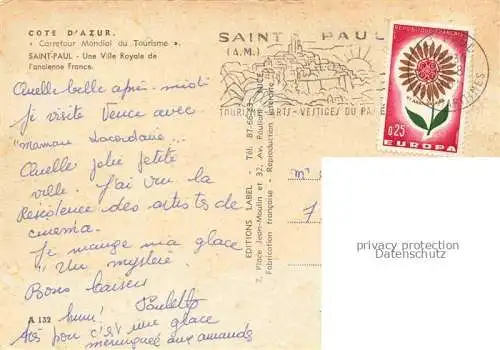 COTE D'AZUR.
« Carrefour Mondial du Tourisme ».
SAINT-PAUL - Une Ville Royale de
l'ancienne France.
Quelle belle après-midi
Je visite Vence avec
"maman Lacordaire...
Quelle jolie petite
ville. J'ai vu la
Résidence des artistes de
cinéma.
Je mange ma glace
"Un mystère.
Bons baisers
Paulette
A 132
c'est une glace
meringuée aux amandes
EDITIONS LABEL - Tél. 87-65-83
7, Place Jean-Moulin et 32, Av. Pauliani - NICE
Fabrication française - Reproduction interdite
SAINT PAUL
(A.M.)
TOURISME-ARTS-VESTIGES DU PA
REPUBLIQUE FRANÇAISE
0,25
EUROPA
7
privacy protection
Datenschutz